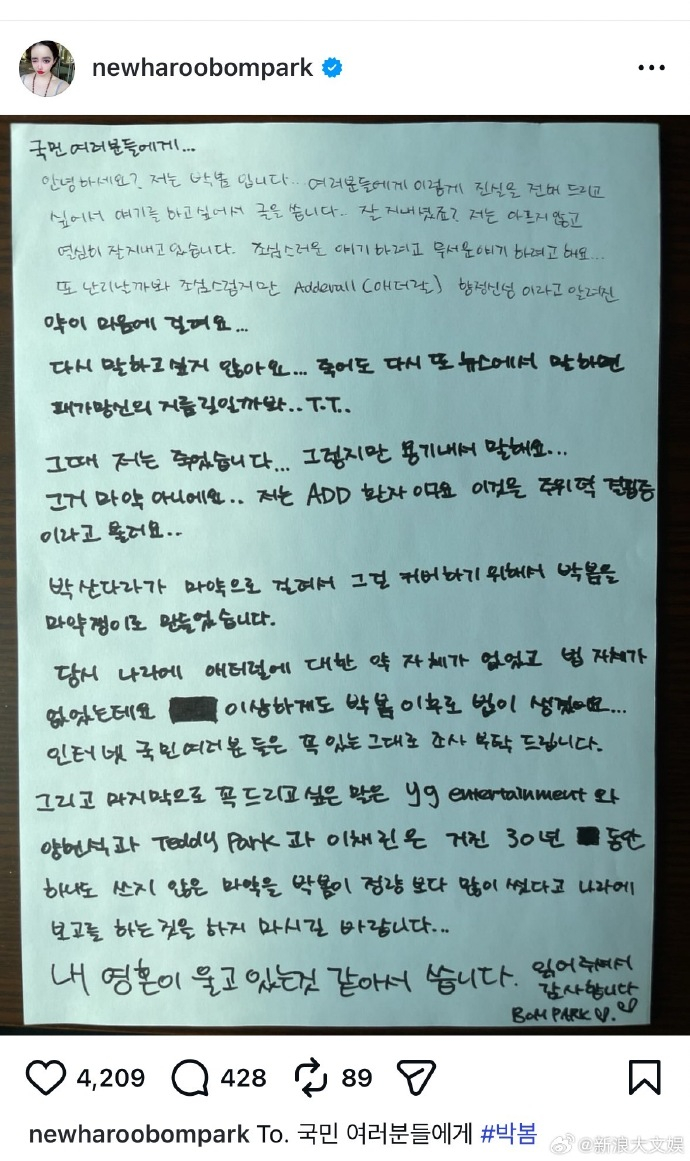 newharoobompark
국민 여러분들에게...
안녕하세요? 저는 박봄 입니다... 여러분들에게 이렇게 진실을 전해 드리고
싶어서 얘기를 하고싶어서 글을 씁니다. 잘 지내셨죠? 저는 아프지 않고
열심히 잘지내고 있습니다. 조심스러운 얘기 하려고 무서운얘기 하려고 해요...
또 난리날까봐 조심스럽지만 Adderall (애더랄) 향정신성 이라고 알려진
약이 마음에 걸려요...
다시 말하고싶지 않아요... 죽어도 다시 또 뉴스에서 말하면
패가망신의 지름길일까봐.. T.T..
그때 저는 죽었습니다... 그렇지만 용기내서 말해요...
그거 마약 아니에요.. 저는 ADD 환자 이구요 이것은 주위력 결핍증
이라고 불려요..
박산다라가 마약으로 걸려서 그걸 커버하기 위해서 박봄을
마약쟁이로 만들었습니다.
당시 나라에 애터럴에 대한 약 자체가 없었고 법 자체가
없었는데요 이상하게도 박봄 이후로 법이 생겼어요...
인터넷 국민여러분 들은 꼭 있는그대로 조사 부탁 드립니다.
그리고 마지막으로 꼭 드리고 싶은 말은 yg entertainment 와
양현석과 Teddy Park 과 이채린은 거진 30년 동안
하나도 쓰지 않은 마약을 박봄이 정량 보다 많이 썼다고 나라에
보고를 하는것을 하지 마시길 바랍니다...
내 영혼이 울고 있는것 같아서 씁니다. 읽어주셔서
감사합니다
BOM PARK♡.♡
4,209 428 89
newharoobompark To. 국민 여러분들에게 #박봄
@新浪大文娱